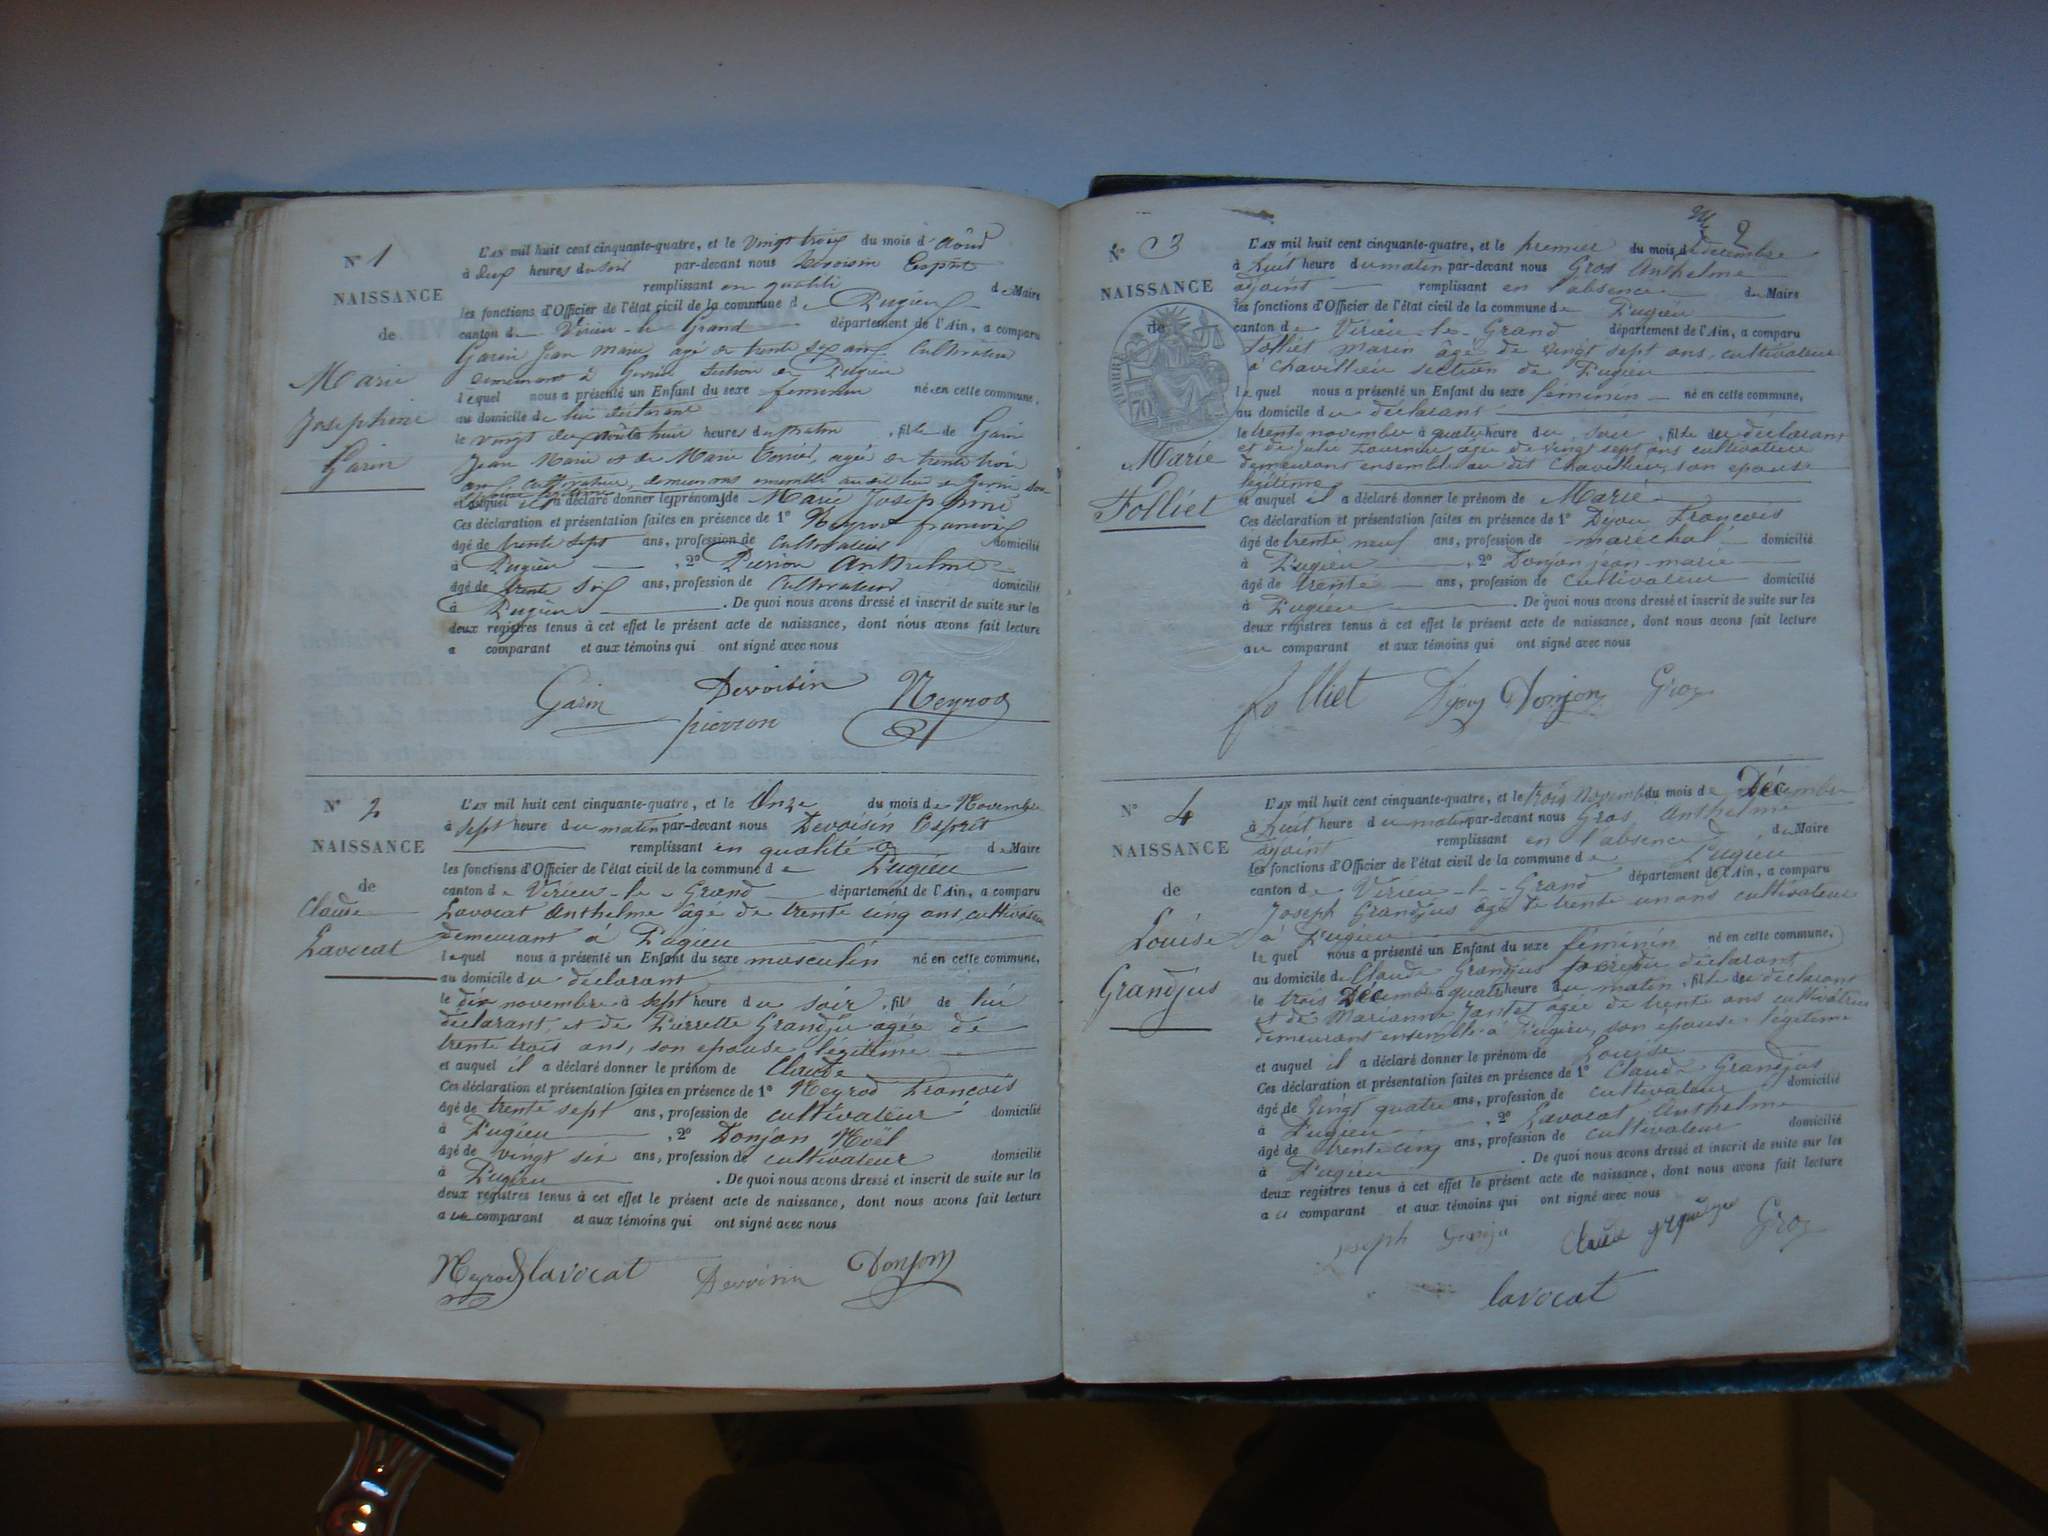 N° 1
NAISSANCE
de
Marie
Joséphine
Garin
L'AN mil huit cent cinquante-quatre, et le vingt trois du mois d'Aôud
à deux heures du soir par-devant nous Devoisin Esprit
remplissant en qualité de Maire
les fonctions d'Officier de l'état civil de la commune de Pugieu
canton de Virieu-le-Grand département de l'Ain, a comparu
Garin Jean Marie agé de trente six ans Cultivateur
demeurant à section de Pugieu
lequel nous a présenté un Enfant du sexe féminin né en cette commune,
au domicile de lui déclarant
le vingt deux heures du matin, fille de Garin
Jean Marie et de Marie agée de trente trois
ans cultivateur, demeurant ensemble au dit lieu de son
et auquel il a déclaré donner les prénoms de Marie Joséphine
Ces déclaration et présentation faites en présence de 1° Neyrod françois
âgé de trente sept ans, profession de Cultivateur domicilié
à Pugieu, 2° Pierron Anthelme
âgé de trente six ans, profession de Cultivateur domicilié
à Pugieu. De quoi nous avons dressé et inscrit de suite sur les
deux registres tenus à cet effet le présent acte de naissance, dont nous avons fait lecture
a comparant et aux témoins qui ont signé avec nous
Garin Devoisin Neyrod
pierron
N° 2
NAISSANCE
de
Claude
Lavocat
L'AN mil huit cent cinquante-quatre, et le Onze du mois de Novembre
à sept heure du matin par-devant nous Devoisin Esprit
remplissant en qualité de Maire
les fonctions d'Officier de l'état civil de la commune de Pugieu
canton de Virieu-le-Grand département de l'Ain, a comparu
Lavocat Anthelme âgé de trente cinq ans, cultivateur
demeurant à Pugieu
lequel nous a présenté un Enfant du sexe masculin né en cette commune,
au domicile du déclarant
le dix novembre à sept heure du soir, fils de lui
déclarant, et de Pierrette Grandju agée de
trente trois ans, son epouse légitime
et auquel il a déclaré donner le prénom de Claude
Ces déclaration et présentation faites en présence de 1° Neyrod François
âgé de trente sept ans, profession de cultivateur domicilié
à Pugieu, 2° Donjon Noël
âgé de vingt six ans, profession de cultivateur domicilié
à Pugieu. De quoi nous avons dressé et inscrit de suite sur les
deux registres tenus à cet effet le présent acte de naissance, dont nous avons fait lecture
a comparant et aux témoins qui ont signé avec nous
Neyrod lavocat Devoisin Donjon
2
N° 3
NAISSANCE
de
TIMBRE
70
Marie
Folliet
L'AN mil huit cent cinquante-quatre, et le premier du mois de décembre
à huit heure du matin par-devant nous Gros Anthelme
ajoint remplissant en l'absence du Maire
les fonctions d'Officier de l'état civil de la commune de Pugieu
canton de Virieu-le-Grand département de l'Ain, a comparu
Folliet Marin âgé de vingt sept ans, cultivateur
à Chavillieu section de Pugieu
lequel nous a présenté un Enfant du sexe féminin né en cette commune,
au domicile du déclarant
le trente novembre à quatre heure du soir, fille du déclarant
et de Julie Fournier agée de vingt sept ans cultivatrice
demeurant ensemble au dit Chavillieu, son epouse
légitime
et auquel il a déclaré donner le prénom de Marie
Ces déclaration et présentation faites en présence de 1° François
âgé de trente neuf ans, profession de maréchal domicilié
à Pugieu, 2° Donjon jean-marie
âgé de trente ans, profession de cultivateur domicilié
à Pugieu. De quoi nous avons dressé et inscrit de suite sur les
deux registres tenus à cet effet le présent acte de naissance, dont nous avons fait lecture
au comparant et aux témoins qui ont signé avec nous
folliet Donjon Gros
N° 4
NAISSANCE
de
Louise
Grandjus
L'AN mil huit cent cinquante-quatre, et le trois novembre du mois de Décembre
à huit heure du matin par-devant nous Gros Anthelme
ajoint remplissant en l'absence du Maire
les fonctions d'Officier de l'état civil de la commune de Pugieu
canton de Virieu-le-Grand département de l'Ain, a comparu
Joseph Grandjus âgé de trente un ans cultivateur
à Pugieu
lequel nous a présenté un Enfant du sexe féminin né en cette commune,
au domicile de Claude Grandjus du déclarant
le trois Décembre à quatre heure du matin, fille du déclarant
et de Marianne Jantet agée de trente ans cultivatrice
demeurant ensemble à Pugieu, son epouse légitime
et auquel il a déclaré donner le prénom de Louise
Ces déclaration et présentation faites en présence de 1° Claude Grandjus
âgé de vingt quatre ans, profession de cultivateur domicilié
à Pugieu, 2° Lavocat Anthelme
âgé de trente cinq ans, profession de cultivateur domicilié
à Pugieu. De quoi nous avons dressé et inscrit de suite sur les
deux registres tenus à cet effet le présent acte de naissance, dont nous avons fait lecture
a comparant et aux témoins qui ont signé avec nous
Joseph Claude Gros
lavocat